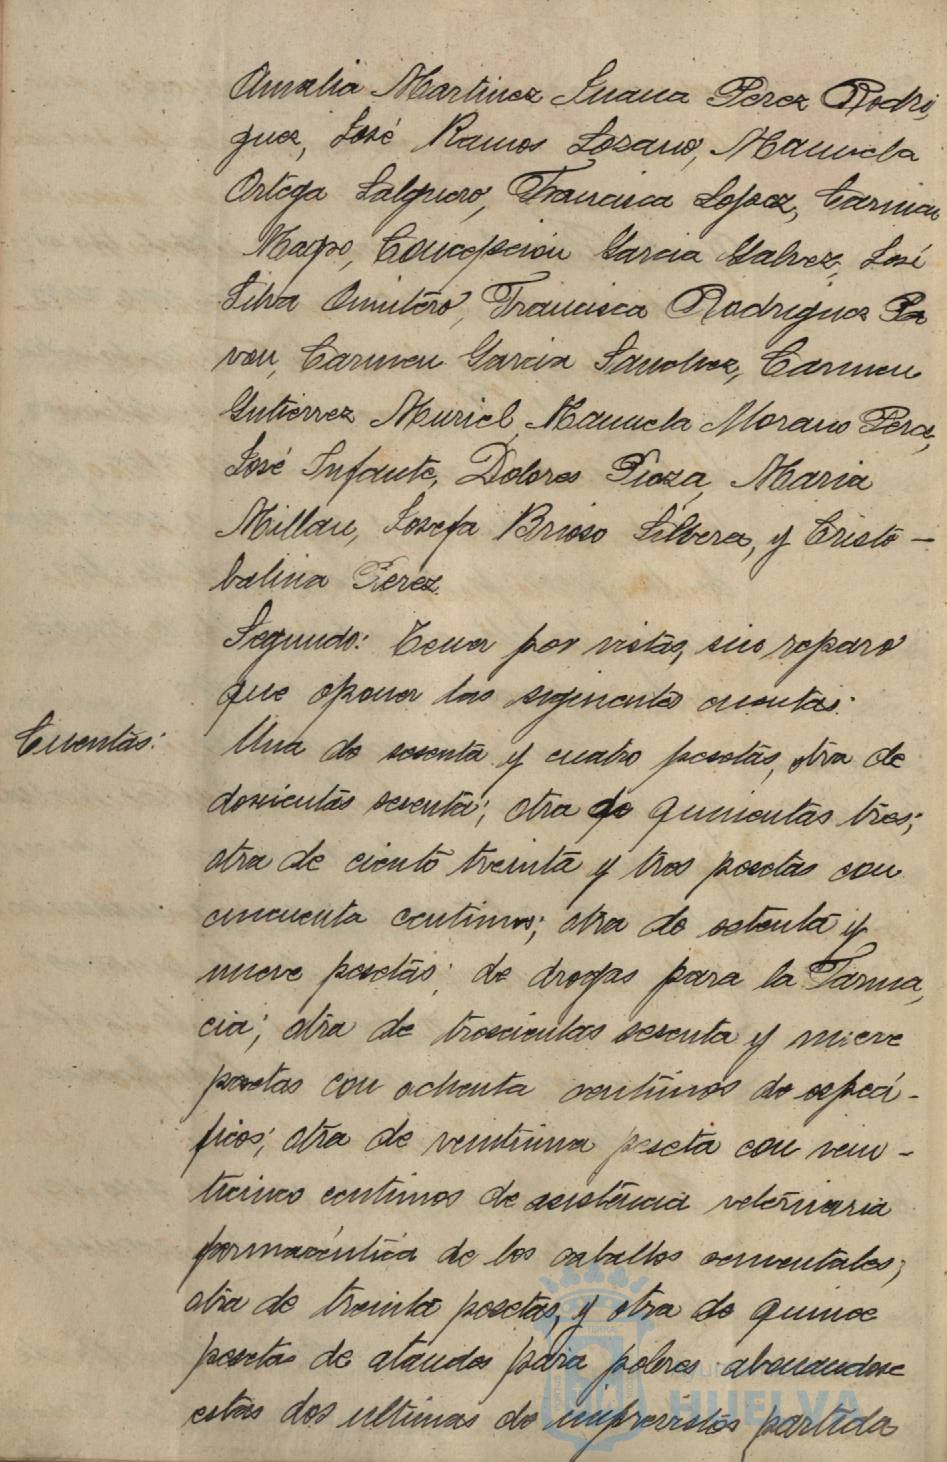 Amalia Martinez Juana Perez Rodri
guez, José Ramos Lozano, Manuela
Ortega Salguero, Francisca Lopez, Carmen
Mayo, Concepcion Garcia Galvez, José
Silva Omitero, Francisca Rodriguez Pa
von, Carmen Garcia Sanchez, Carmen
Gutierrez Muriel, Manuela Morano Perez,
José Infante, Dolores Pioza, Maria
Millan, Josefa Brioso Silvera, y Cristo-
balina Perez.
Segundo: Tener por vistas, sin reparo
que oponer las siguientes cuentas:
Cuentas:
Una de sesenta y cuatro pesetas, otra de
doscientas sesenta; otra de quinientas tres;
otra de ciento treinta y tres pesetas con
cincuenta centimos; otra de setenta y
nueve pesetas; de drogas para la Farma
cia; otra de trescientas sesenta y nueve
pesetas con ochenta centimos de especi-
ficos; otra de veintiuna peseta con vein-
ticinco centimos de asistencia veterinaria
farmacéutica de los caballos sementales;
otra de treinta pesetas, y otra de quince
pesetas de ataudes para pobres abonandose
estas dos ultimas de imprevistos partida
HUELVA